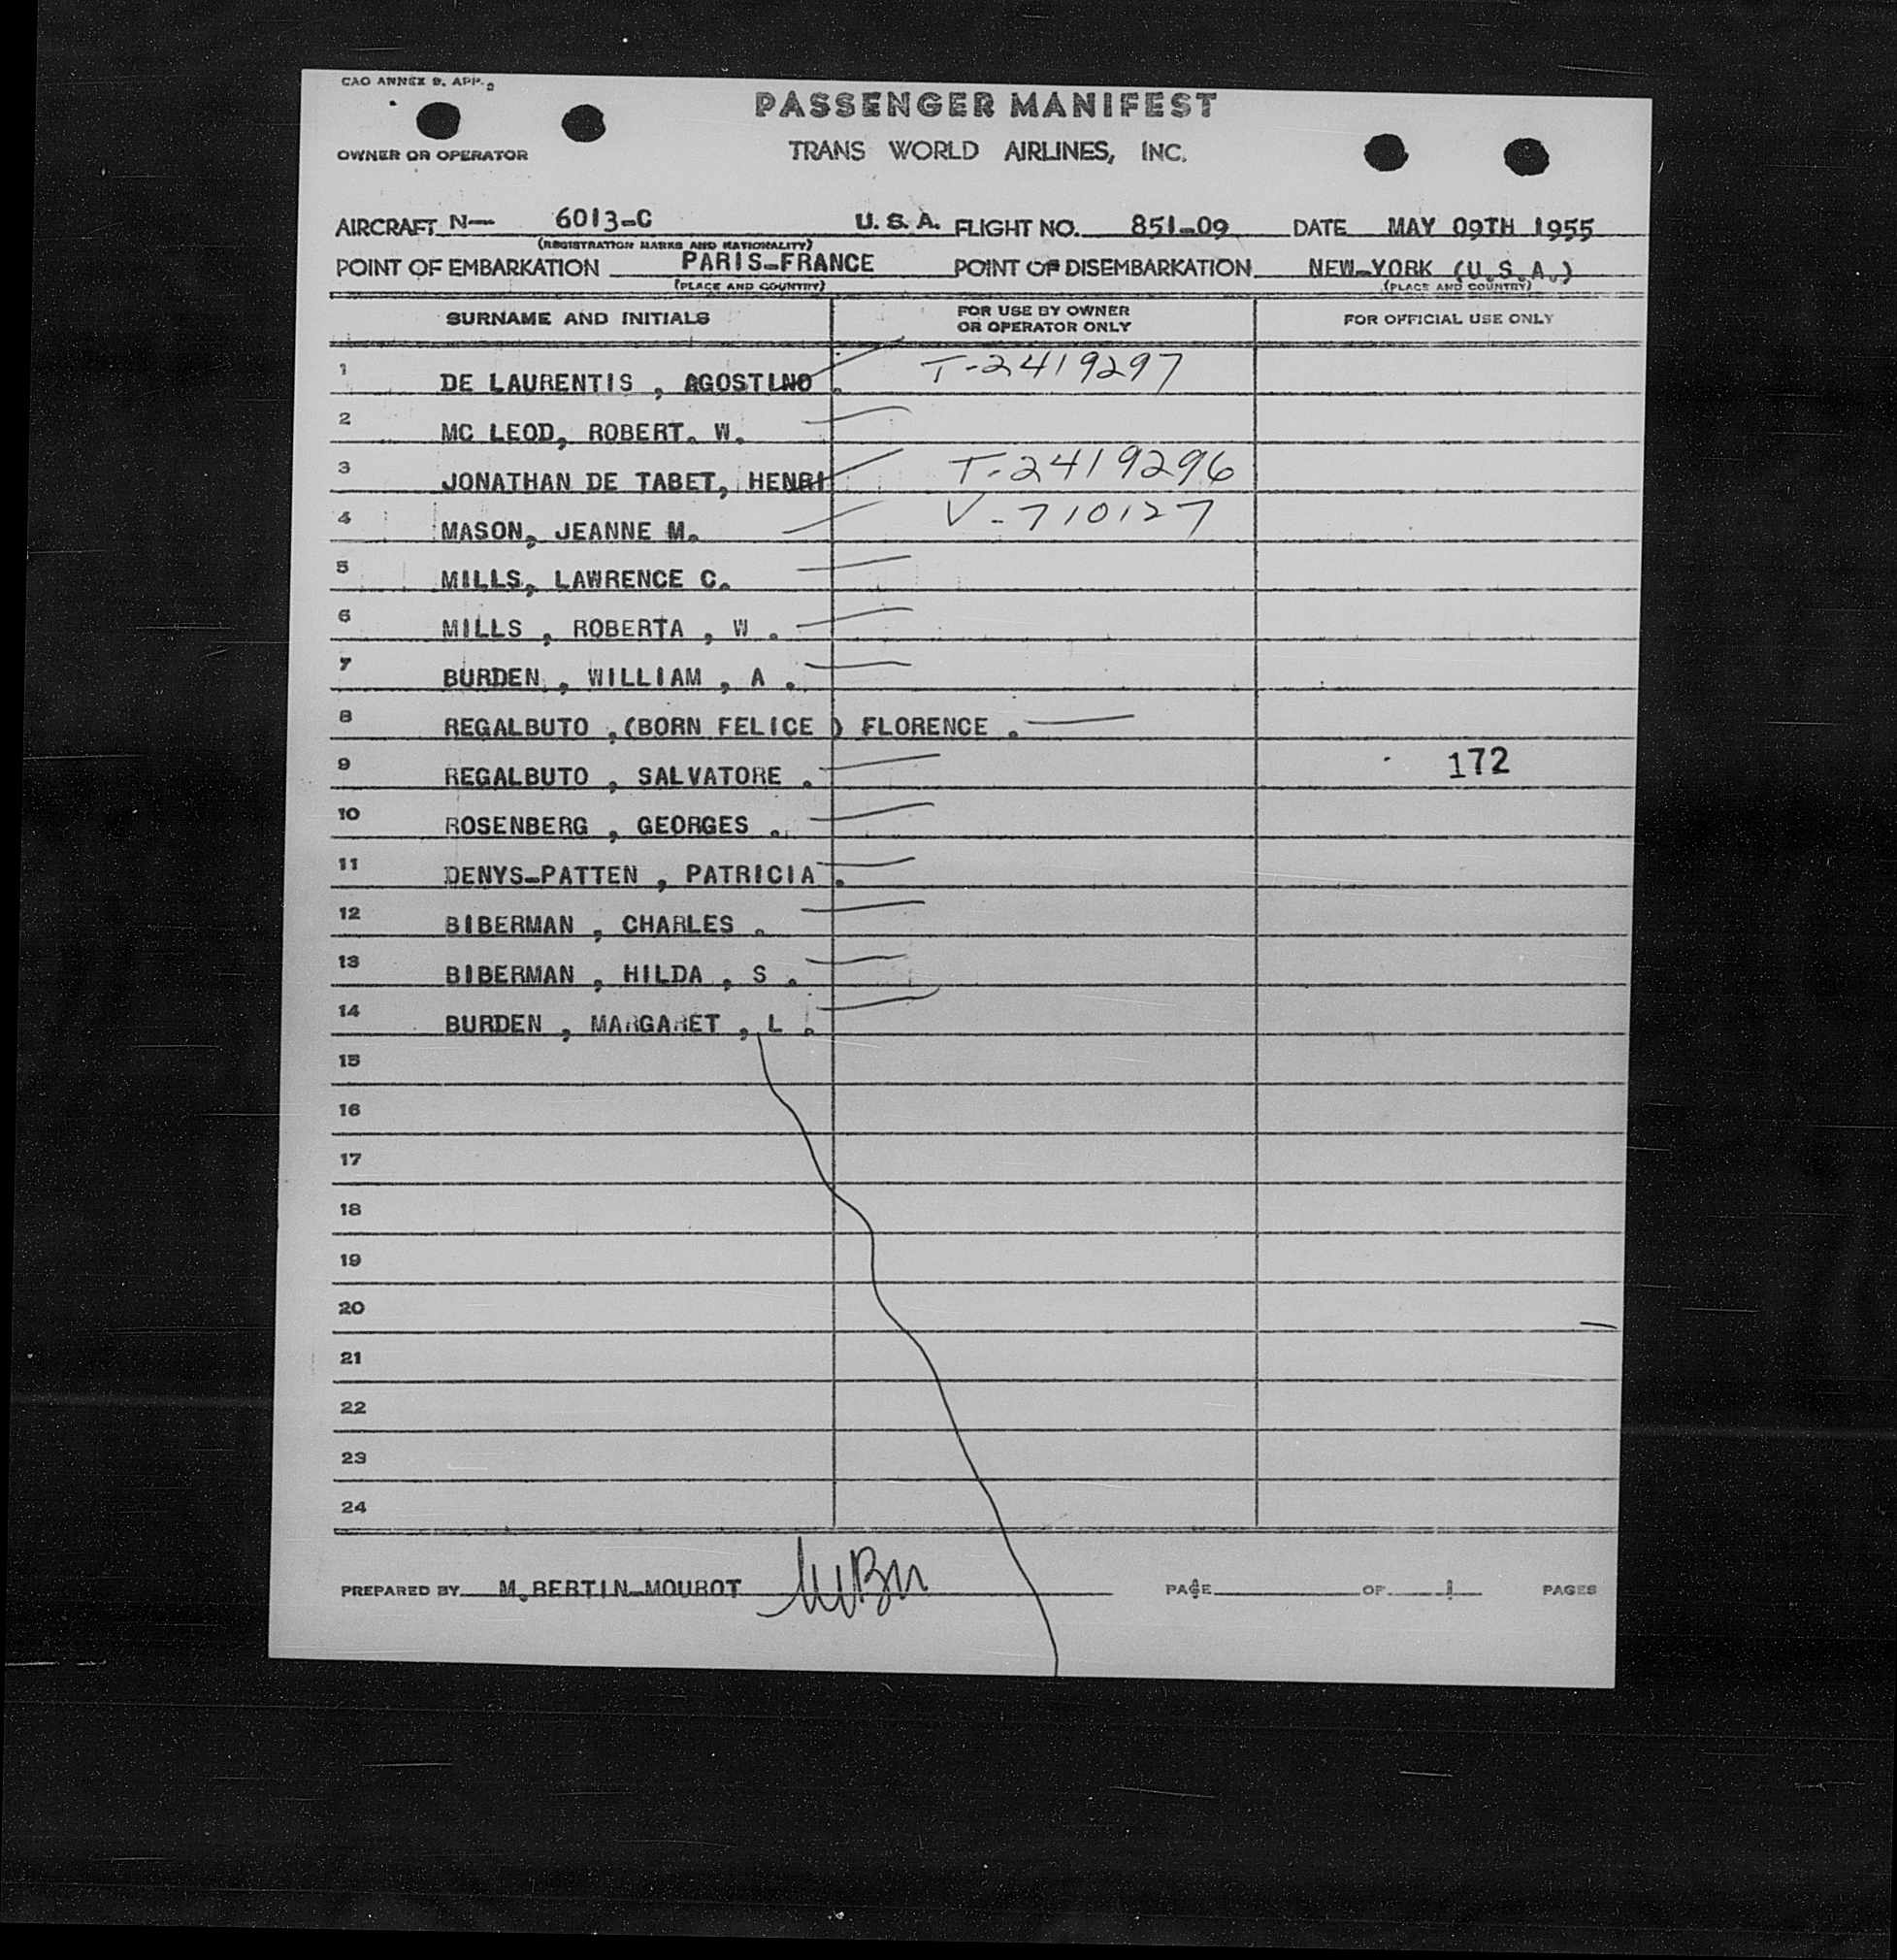 CAO ANNEX 9. APP. 2
PASSENGER MANIFEST
OWNER OR OPERATOR TRANS WORLD AIRLINES, INC.
AIRCRAFT N— 6013-C U. S. A. FLIGHT NO. 851-09 DATE MAY 09TH 1955
(REGISTRATION MARKS AND NATIONALITY)
POINT OF EMBARKATION PARIS-FRANCE POINT OF DISEMBARKATION NEW-YORK (U.S.A.)
(PLACE AND COUNTRY) (PLACE AND COUNTRY)
SURNAME AND INITIALS FOR USE BY OWNER OR OPERATOR ONLY FOR OFFICIAL USE ONLY
1 DE LAURENTIS , AGOSTINO . T-2419297
2 MC LEOD, ROBERT. W.
3 JONATHAN DE TABET, HENRI T-2419296
4 MASON, JEANNE M. V-710127
5 MILLS, LAWRENCE C.
6 MILLS , ROBERTA , W .
7 BURDEN , WILLIAM , A .
8 REGALBUTO ,(BORN FELICE ) FLORENCE .
9 REGALBUTO , SALVATORE . 172
10 ROSENBERG , GEORGES .
11 DENYS-PATTEN , PATRICIA .
12 BIBERMAN , CHARLES .
13 BIBERMAN , HILDA , S .
14 BURDEN , MARGARET , L .
15
16
17
18
19
20
21
22
23
24
PREPARED BY M.BERTIN-MOUROT PAGE OF 1 PAGES